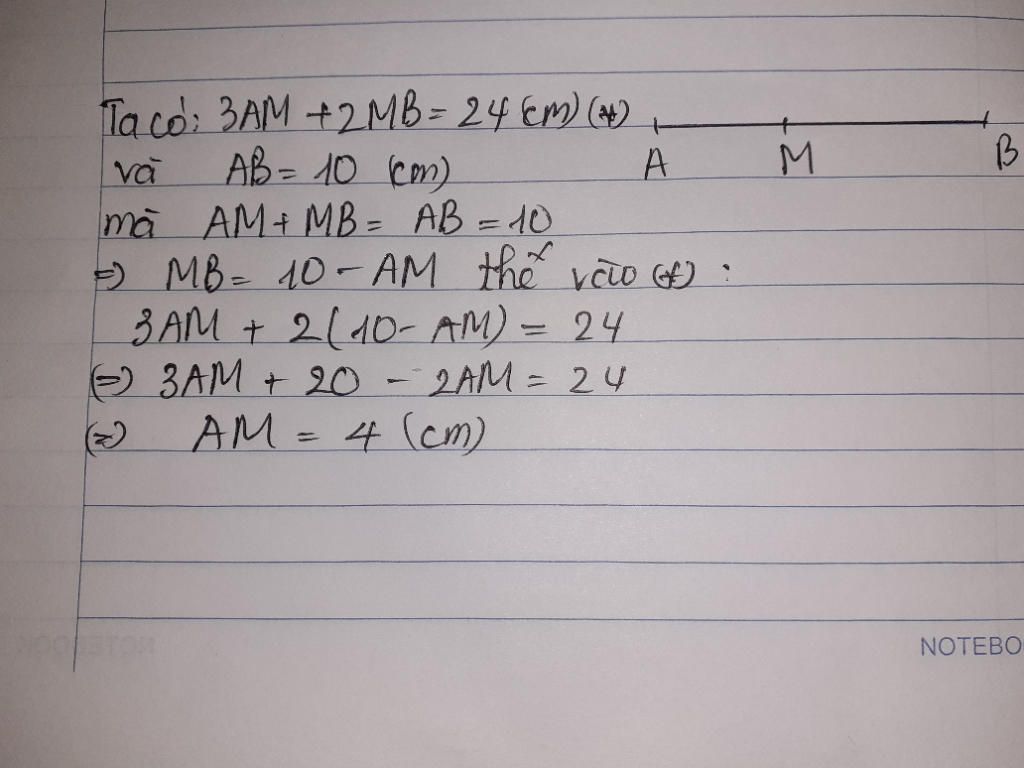 Ta có: 3AM + 2MB = 24 (cm) (*)
A M B
và AB = 10 (cm)
mà AM + MB = AB = 10
=> MB = 10 - AM thế vào (*) :
3AM + 2(10 - AM) = 24
(=) 3AM + 20 - 2AM = 24
(=) AM = 4 (cm)
NOTEBO